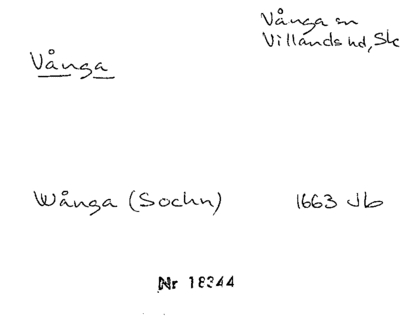 Vånga sn
Villands hd, Sk
Vånga
Wånga (Sochn) 1663 Jb
Nr 18344